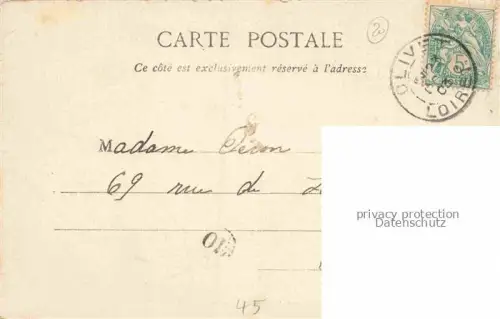 CARTE POSTALE
Ce côté est exclusivement réservé à l'adresse
OLIVET
LOIRET
5
Madame
69 rue de
privacy protection
Datenschutz
45